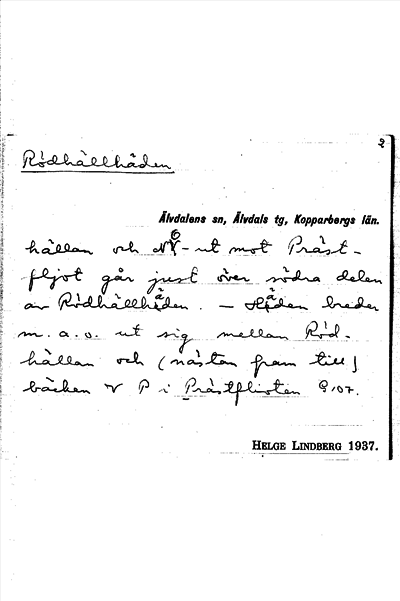 2
Rödhällhäden
Älvdalens sn, Älvdals tg, Kopparbergs län.
hällan och NÖ-ut mot Präst-
fljot går just över södra delen
av Rödhällhäden. — Häden breder
m.a.o. ut sig mellan Röd-
hällan och (nästan fram till)
bäcken V P i Prästfljoten
HELGE LINDBERG 1937.